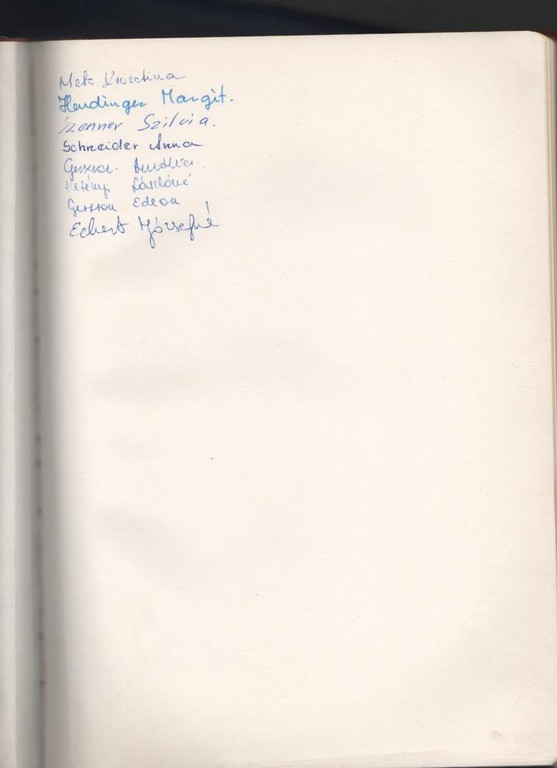 Metz Krisztina
Hendinger Margit.
Szenner Szilvia.
Schneider Anna
Gerzson
Lászlóné
Gerzson Edson
Eckert Józsefné